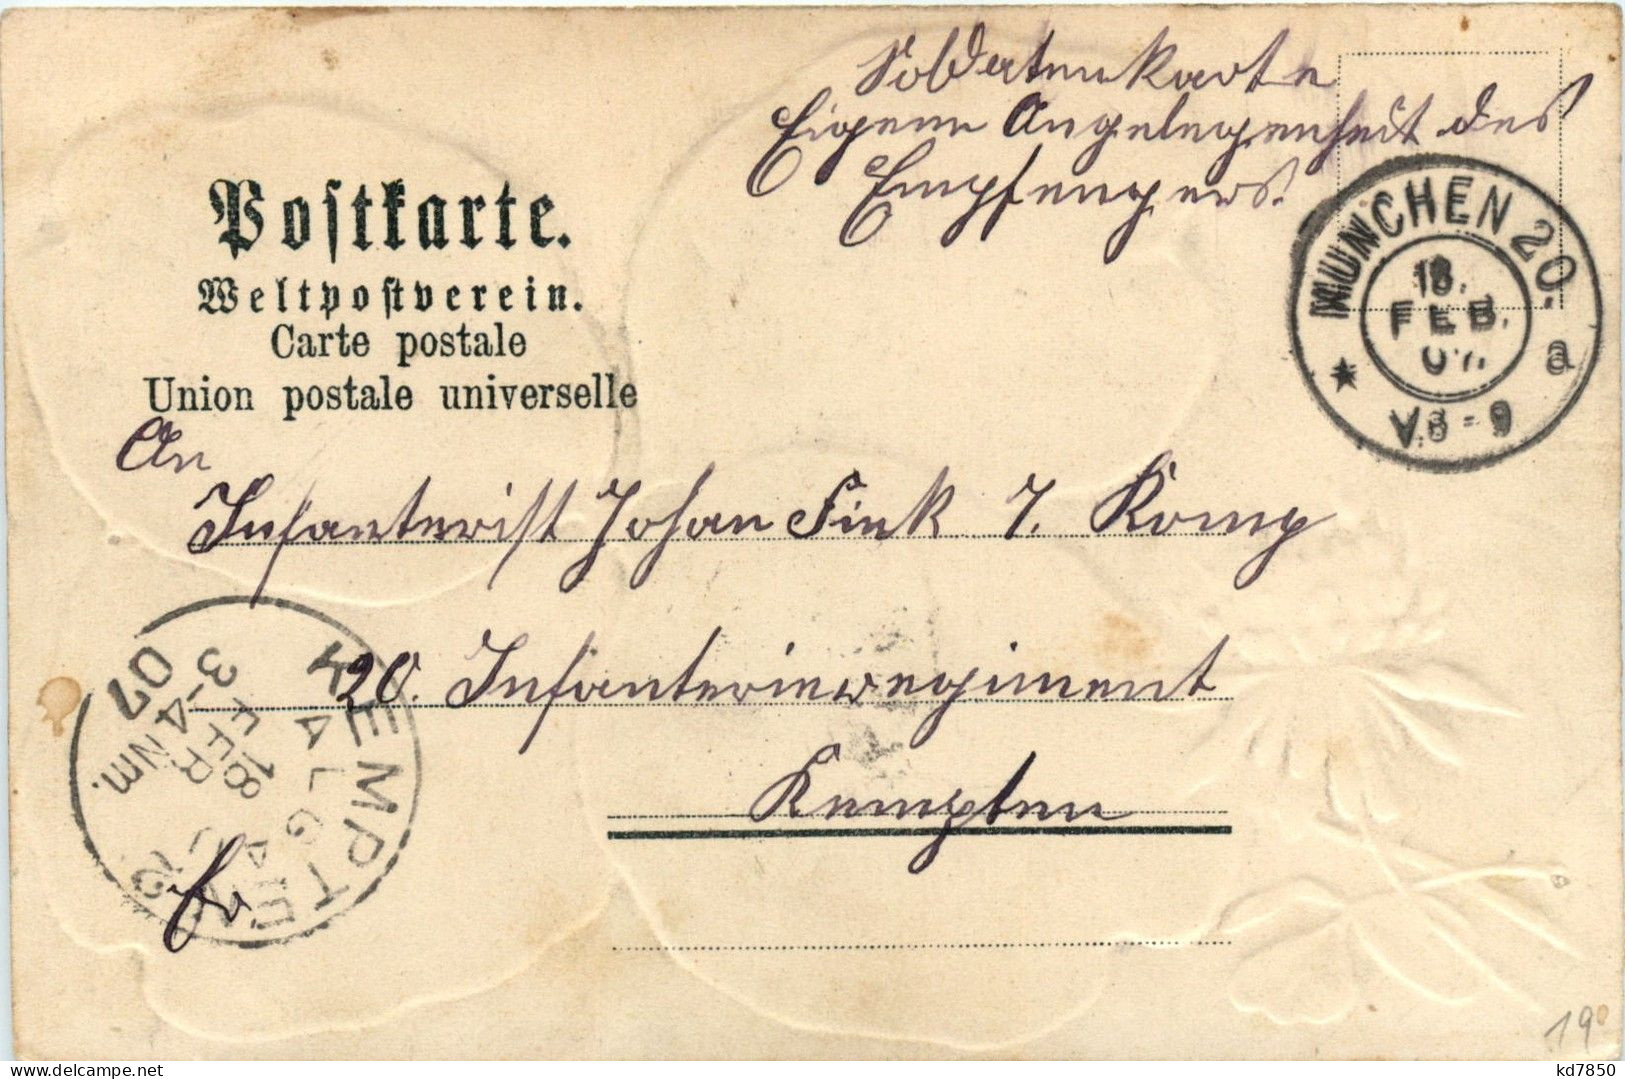 Soldatenkarte
Eigene Angelegenheit des
Empfengers.
Postkarte.
Weltpostverein.
Carte postale
Union postale universelle
MÜNCHEN 20.
18.
FEB.
07.
a
V.8-9
An
Infanterist Johan Fink 7. Komp
20. Infanterieregiment
Kempten
KEMPTEN
ALG
18 FEB
3-4 NM.
07
19
kd7850